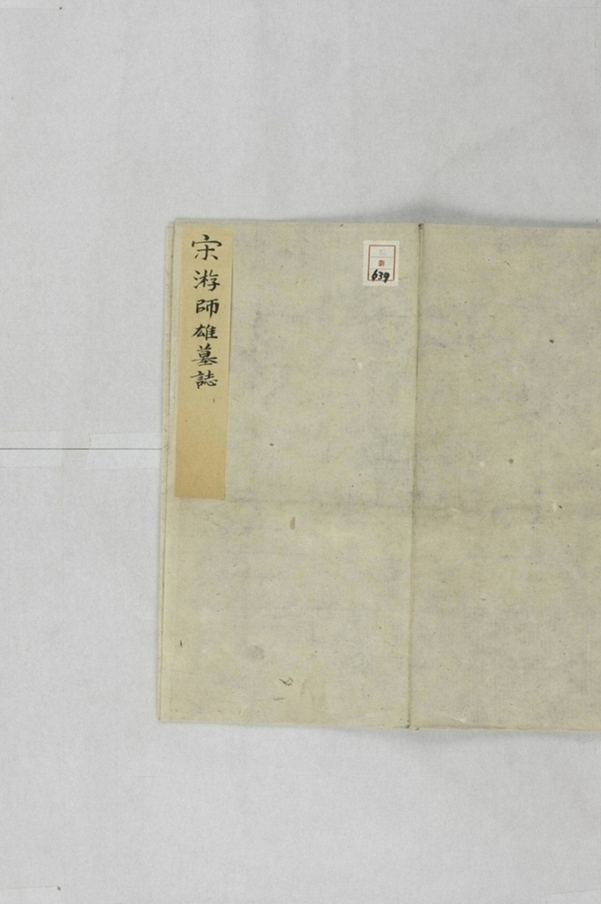 宋游師雄墓誌
639